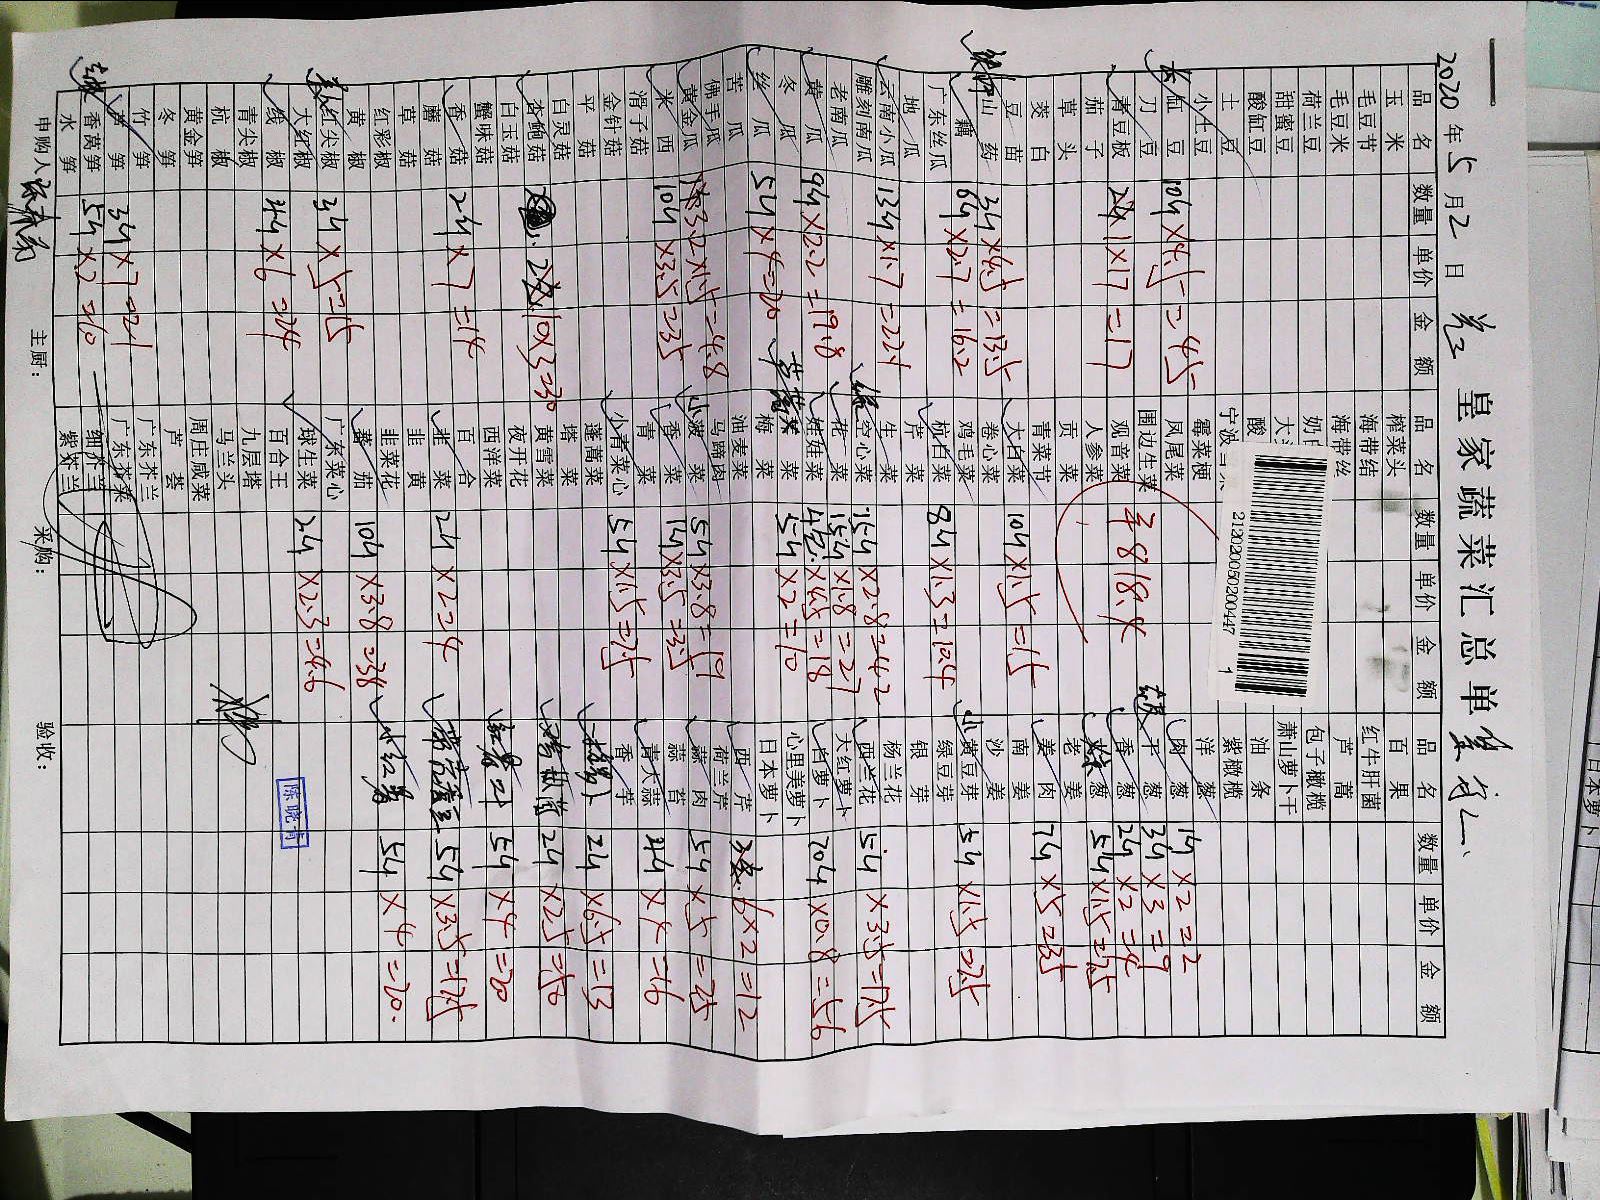 2020年5月2日
皇家蔬菜汇总单
品名 数量 单价 金额 品名 数量 单价 金额 品名 数量 单价 金额
玉米 榨菜头 百果
毛豆节 海带结 红牛肝菌
毛豆米 海带丝 芦蒿
荷兰豆 包子橄榄
甜蜜豆 萧山萝卜干
酸缸豆 油条
土豆 紫橄榄
小生豆 霉菜梗 洋葱
缸豆 凤尾菜 肉葱
刀豆 围边生菜 干葱 3斤×3=9
青豆板 1×17=17 观音菜 香葱 2斤×2=4
茄子 人参菜 老姜 5斤×1.5=7.5
草头 贡菜 姜肉 7斤×5=35
茭白 青菜节 南姜
豆苗 大白菜 10斤×1.5=15 沙姜
山药 3斤×4.5=13.5 卷心菜 小黄豆芽 5斤×1.5=7.5
藕 6斤×2.7=16.2 鸡毛菜 绿豆芽
广东丝瓜 杭白菜 8斤×1.3=10.4 银芽
地瓜 芹菜 杨兰花
云南小瓜 13斤×1.7=22.1 生菜 西兰花 5斤×3.5=17.5
雕刻南瓜 空心菜 15斤×2.8=42 大红萝卜
老南瓜 花菜 15斤×1.8=27 白萝卜 70斤×0.8=56
黄瓜 9斤×2.2=19.8 娃娃菜 4包×4.5=18 心里美萝卜
冬瓜 5斤×2=10 日本萝卜
丝瓜 5斤×4=20 梅菜 西芹 6×2=12
苦瓜 油麦菜 荷兰芹
佛手瓜 马蹄肉 蒜肉 5斤×5=25
黄金瓜 3.2×1.5=4.8 小菠菜 5斤×3.8=19 蒜苔
米西 10斤×3.5=35 香菜 1斤×3.5=3.5 青大蒜 4斤×4=16
滑子菇 青菜 香芋
金针菇 小青菜心 5斤×1.5=7.5 2斤×6.5=13
平菇 蓬蒿菜
白灵菇 塔菜 2斤×25=50
杏鲍菇 10×3=30 黄雪菜
白玉菇 夜开花 5斤×4=20
蟹味菇 西洋菜
香菇 2斤×7=14 百合 5斤×3.5=17.5
蘑菇 韭菜 2斤×2=4
草菇 韭黄 小红薯 5斤×4=20
红彩椒 韭菜花
黄椒 蕃茄 10斤×3.8=38
红尖椒 3斤×5=15 广东菜心
大红椒 球生菜 2斤×2.3=4.6
线椒 4斤×6=24 百合王
青尖椒 九层塔
杭椒 马兰头
黄金笋 周庄咸菜
冬笋 芦荟
竹笋 广东芥兰
笋 3斤×7=21 广东芥菜
香莴笋 5斤×2=10 细芥兰
水笋 紫芥兰
818.4
21202005020044471
申购人: 主厨: 采购: 验收:
陈晓青
日本萝卜